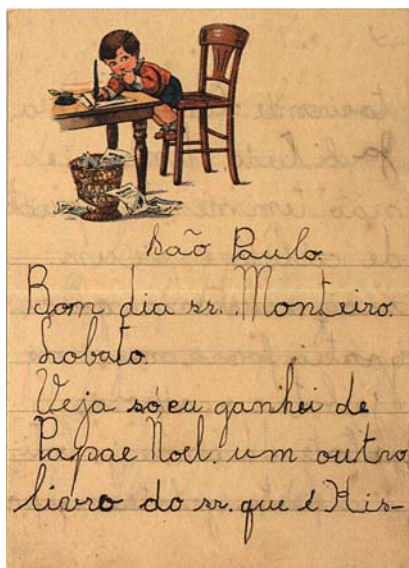 São Paulo.
Bom dia sr. Monteiro.
Lobato.
Veja só, eu ganhei de
Papae Noel. um outro
livro do sr. que é His-